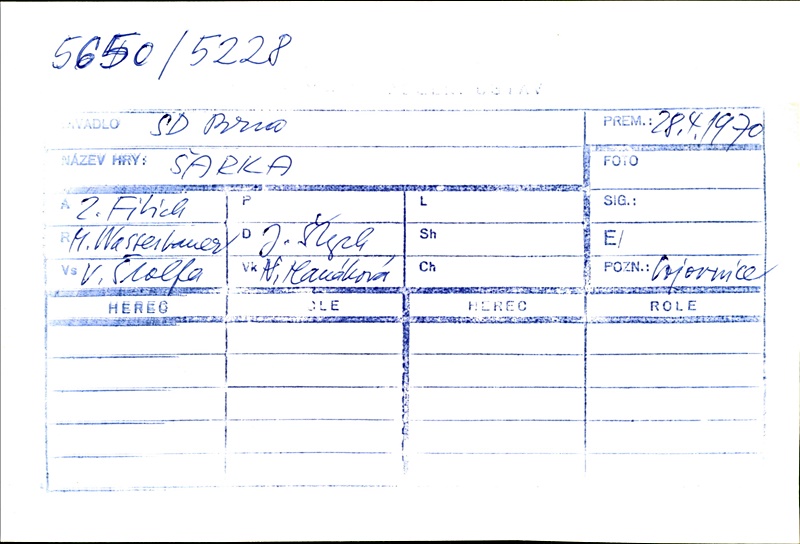 5650/5228
DIVADLO SD Brno PREM.: 28.4.1970
NÁZEV HRY: ŠÁRKA FOTO
A Z. Fibich P L SIG.:
R M. Wasserbauer D J. Štych Sh E/
Vs V. Štolfa Vk N. Hanáková Ch POZN.:
HEREC ROLE HEREC ROLE